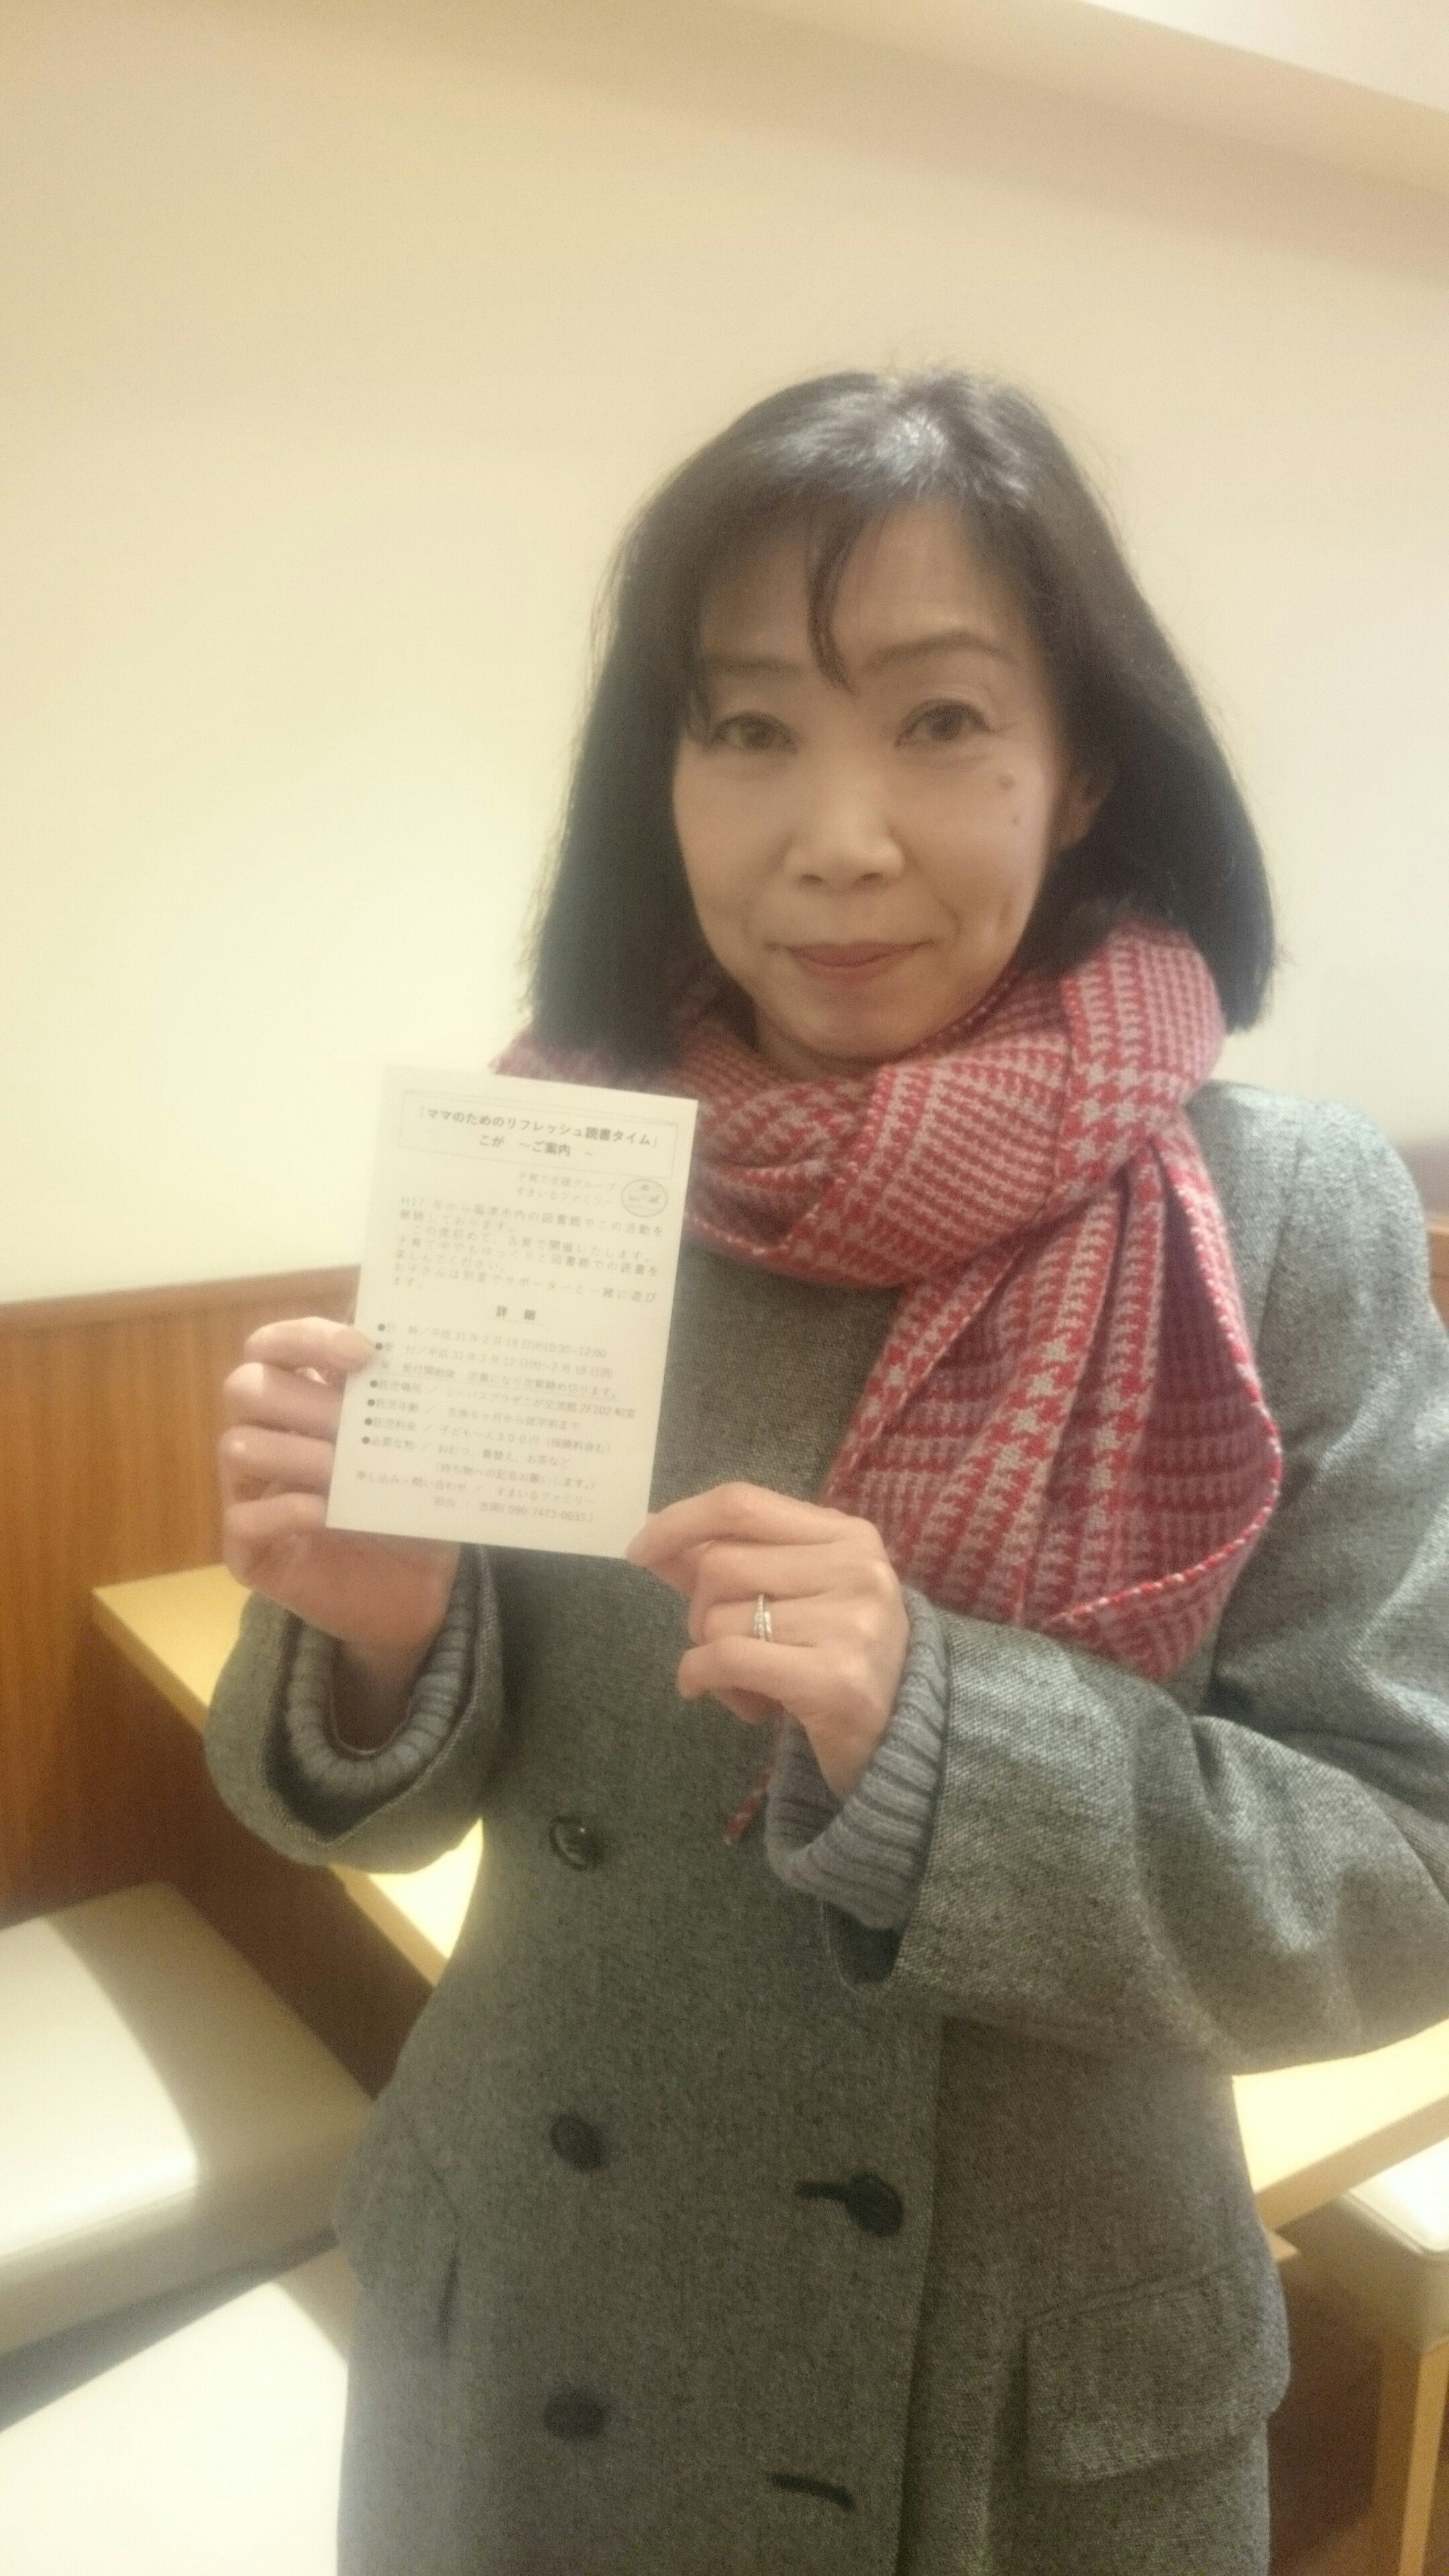 「ママのためのリフレッシュ読書タイム」
こが ～ご案内 ~
子育て支援グループ
すまいるファミリー
H17 年から福津市内の図書館でこの活動を
継続しております。
この度初めて、古賀で開催いたします。
子育て中でもゆっくりと図書館での読書を
楽しんでください。
お子さんは別室でサポーターと一緒に遊び
ます。
詳 細
●日 時／平成 31 年 2 月 19 日(火)10:30~12:00
●受 付／平成 31 年 2 月 12 日(火)~2 月 18 日(月)
受付開始後 定員になり次第締め切ります。
●託児場所 ／ リーパスプラザこが交流館 2F202 和室
●託児年齢 ／ 生後６ヶ月から就学前まで
●託児料金 ／ 子ども一人３００円（保険料含む）
●必要な物 ／ おむつ、着替え、お茶など
（持ち物への記名お願いします。）
申し込み・問い合わせ ／ すまいるファミリー
担当 : 090-7473-0033）